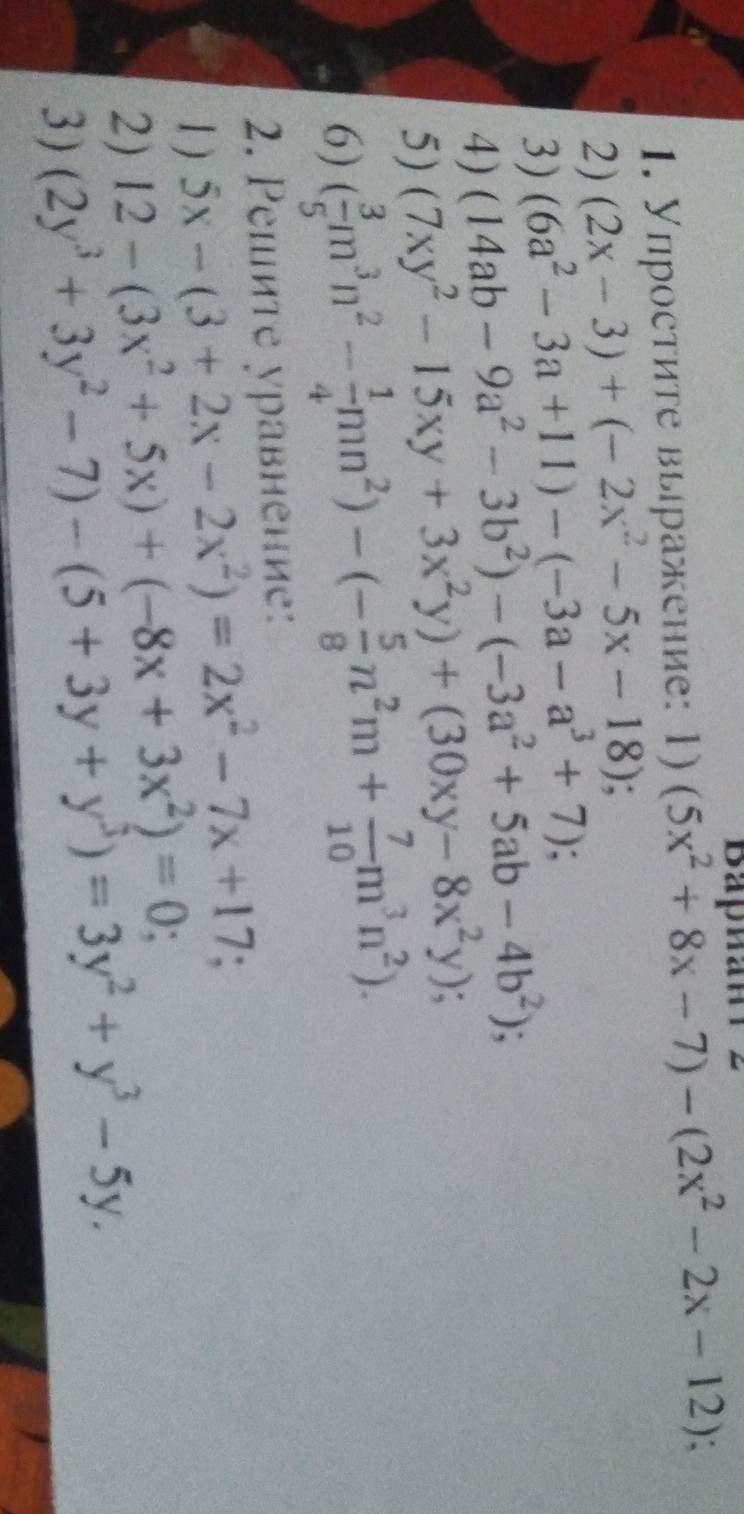 Вариант 2
1. Упростите выражение: 1) (5x² + 8x – 7) – (2x² – 2x – 12);
2) (2x – 3) + (– 2x² – 5x – 18);
3) (6a² – 3a +11) – (–3a – a³ + 7);
4) (14ab – 9a² – 3b²) – (–3a² + 5ab – 4b²);
5) (7xy² – 15xy + 3x²y) + (30xy– 8x²y);
6) (3/5 m³n² – 1/4 mn²) – (– 5/8 n²m + 7/10 m³n²).
2. Решите уравнение:
1) 5x – (3 + 2x – 2x²) = 2x² – 7x +17;
2) 12 – (3x² + 5x) + (–8x + 3x²) = 0;
3) (2y³ + 3y² – 7) – (5 + 3y + y³) = 3y² + y³ – 5y.